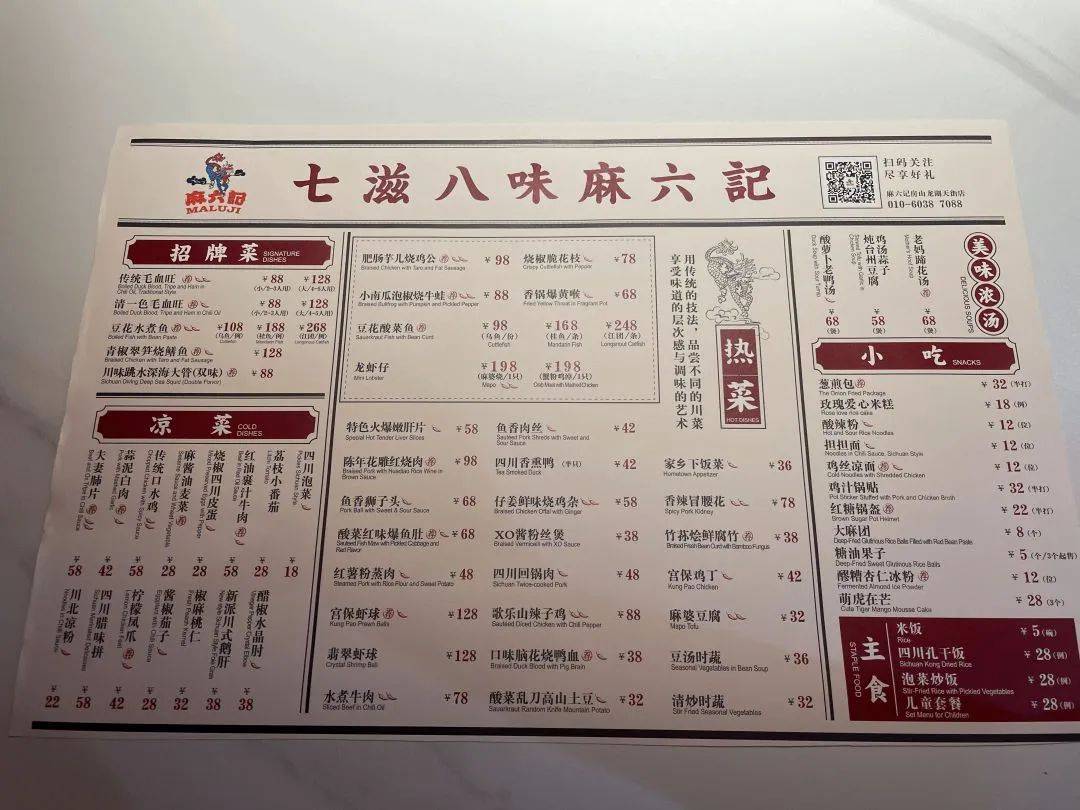 麻六記
MALUJI
七滋八味麻六記
扫码关注
尽享好礼
麻六记房山龙湖天街店
010-6038 7088
招牌菜 SIGNATURE DISHES
传统毛血旺 荐 ¥88 (小/2-3人用) ¥128 (大/4-5人用)
Boiled Duck Blood, Tripe and Ham in Chili Oil, Traditional Style
清一色毛血旺 荐 ¥88 (小/2-3人用) ¥128 (大/4-5人用)
Boiled Duck Blood, Tripe and Ham in Chili Oil
豆花水煮鱼 荐 ¥108 (乌鱼/例) Cuttlefish ¥188 (桂鱼/例) Mandarin Fish ¥268 (江团/例) Longsnout Catfish
Boiled Fish with Bean Paste
青椒翠笋烧鳝鱼 荐 ¥128
Braised Chicken with Taro and Fat Sausage
川味跳水深海大管(双味) 荐 ¥88
Sichuan Diving Deep Sea Squid (Double Flavor)
凉菜 COLD DISHES
夫妻肺片 荐 ¥58
Beef and Ox Tripe in Chili Sauce
蒜泥白肉 荐 ¥42
Pork with Mashed Garlic
传统口水鸡 ¥58
Chopped Chicken with Spicy Sauce
麻酱油麦菜 荐 ¥28
Sesame Sauce and Wheat Vegetable
烧椒四川皮蛋 ¥28
Mixed Preserved Eggs with Pepper
红油裹汁牛肉 荐 ¥58
Beef in Red Oil Sauce
荔枝小番茄 ¥28
Litchi Tomato
四川泡菜 ¥18
Pickles Sichuan Style
川北凉粉 ¥22
Noodles in Chili Sauce
四川腊味拼 ¥58
柠檬凤爪 荐 ¥42
Lemon Chicken Feet
酱椒茄子 ¥28
Eggplant with Chili Sauce
椒麻桃仁 ¥32
Fresh Peach Kernel
新派川式鹅肝 ¥38
New style Sichuan Style Foie Gras
醋椒水晶肘 ¥38
Vinegar Pepper Crystal Elbow
肥肠芋儿烧鸡公 荐 ¥98
Braised Chicken with Taro and Fat Sausage
烧椒脆花枝 ¥78
Crispy Cuttlefish with Pepper
小南瓜泡椒烧牛蛙 荐 ¥88
Braised Bullfrog with Pumpkin and Pickled Pepper
香锅爆黄喉 ¥68
Fried Yellow Throat in Fragrant Pot
豆花酸菜鱼 荐 ¥98 (乌鱼/份) Cuttlefish ¥168 (桂鱼/条) Mandarin Fish ¥248 (江团/条) Longsnout Catfish
Sauerkraut Fish with Bean Curd
龙虾仔 ¥198 (麻婆烧/1只) Mapo ¥198 (蟹粉鸡淖/1只) Crab Meat with Mashed Chicken
Mini Lobster
用传统的技法，品尝不同的川菜
享受味道的层次感与调味的艺术
热菜
HOT DISHES
特色火爆嫩肝片 ¥58
Special Hot Tender Liver Slices
鱼香肉丝 ¥42
Sauteed Pork Shreds with Sweet and Sour Sauce
陈年花雕红烧肉 荐 ¥98
Braised Pork with Huadiao Rice Wine in Brown Sauce
四川香熏鸭 (半只) ¥42
Tea Smoked Duck
家乡下饭菜 ¥36
Hometown Appetizer
鱼香狮子头 ¥68
Pork Ball with Sweet & Sour Sauce
仔姜鲜味烧鸡杂 ¥58
Braised Chicken Offal with Ginger
香辣冒腰花 ¥78
Spicy Pork Kidney
酸菜红味爆鱼肚 荐 ¥68
Sauteed Fish Maw with Pickled Cabbage and Red Flavor
XO酱粉丝煲 ¥38
Braised Vermicelli with XO Sauce
竹荪烩鲜腐竹 荐 ¥38
Braised Fresh Bean Curd with Bamboo Fungus
红薯粉蒸肉 ¥48
Steamed Pork with Rice Flour and Sweet Potato
四川回锅肉 ¥48
Sichuan Twice-cooked Pork
宫保鸡丁 ¥42
Kung Pao Chicken
宫保虾球 荐 ¥128
Kung Pao Prawn Balls
歌乐山辣子鸡 ¥88
Sauteed Diced Chicken with Chili Pepper
麻婆豆腐 ¥32
Mapo Tofu
翡翠虾球 ¥128
Crystal Shrimp Ball
口味脑花烧鸭血 荐 ¥38
Braised Duck Blood with Pig Brain
豆汤时蔬 ¥36
Seasonal Vegetables in Bean Soup
水煮牛肉 ¥78
Sliced Beef in Chili Oil
酸菜乱刀高山土豆 ¥32
Sauerkraut Random Knife Mountain Potato
清炒时蔬 ¥32
Stir Fried Seasonal Vegetables
美味浓汤
DELICIOUS SOUPS
酸萝卜老鸭汤 ¥68 (煲)
Duck Soup with Sour Turnip
鸡汤蒜子炖台州豆腐 ¥58 (煲)
老妈蹄花汤 荐 ¥68 (煲)
Mother's Hoof Soup
小吃 SNACKS
葱煎包 荐 ¥32 (半打)
The Onion Fried Package
玫瑰爱心米糕 ¥18 (例)
Rose love rice cake
酸辣粉 ¥12 (位)
Hot and Sour Rice Noodles
担担面 ¥12 (位)
Noodles in Chili Sauce, Sichuan Style
鸡丝凉面 荐 ¥12 (位)
Cold Noodles with Shredded Chicken
鸡汁锅贴 ¥32 (半打)
Pot Sticker Stuffed with Pork and Chicken Broth
红糖锅盔 荐 ¥22 (半打)
Brown Sugar Pot Helmet
大麻团 ¥8 (个)
Deep-Fried Glutinous Rice Balls Filled with Red Bean Paste
糖油果子 ¥5 (个/3个起售)
Deep-Fried Sweet Glutinous Rice Balls
醪糟杏仁冰粉 荐 ¥12 (位)
Fermented Almond Ice Powder
萌虎在芒 ¥28 (3个)
Cute Tiger Mango Mousse Cake
主食
STAPLE FOOD
米饭 ¥5 (碗)
Rice
四川孔干饭 ¥28 (例)
Sichuan Kong Dried Rice
泡菜炒饭 ¥28 (例)
Stir-Fried Rice with Pickled Vegetables
儿童套餐 ¥28 (例)
Set Menu for Children